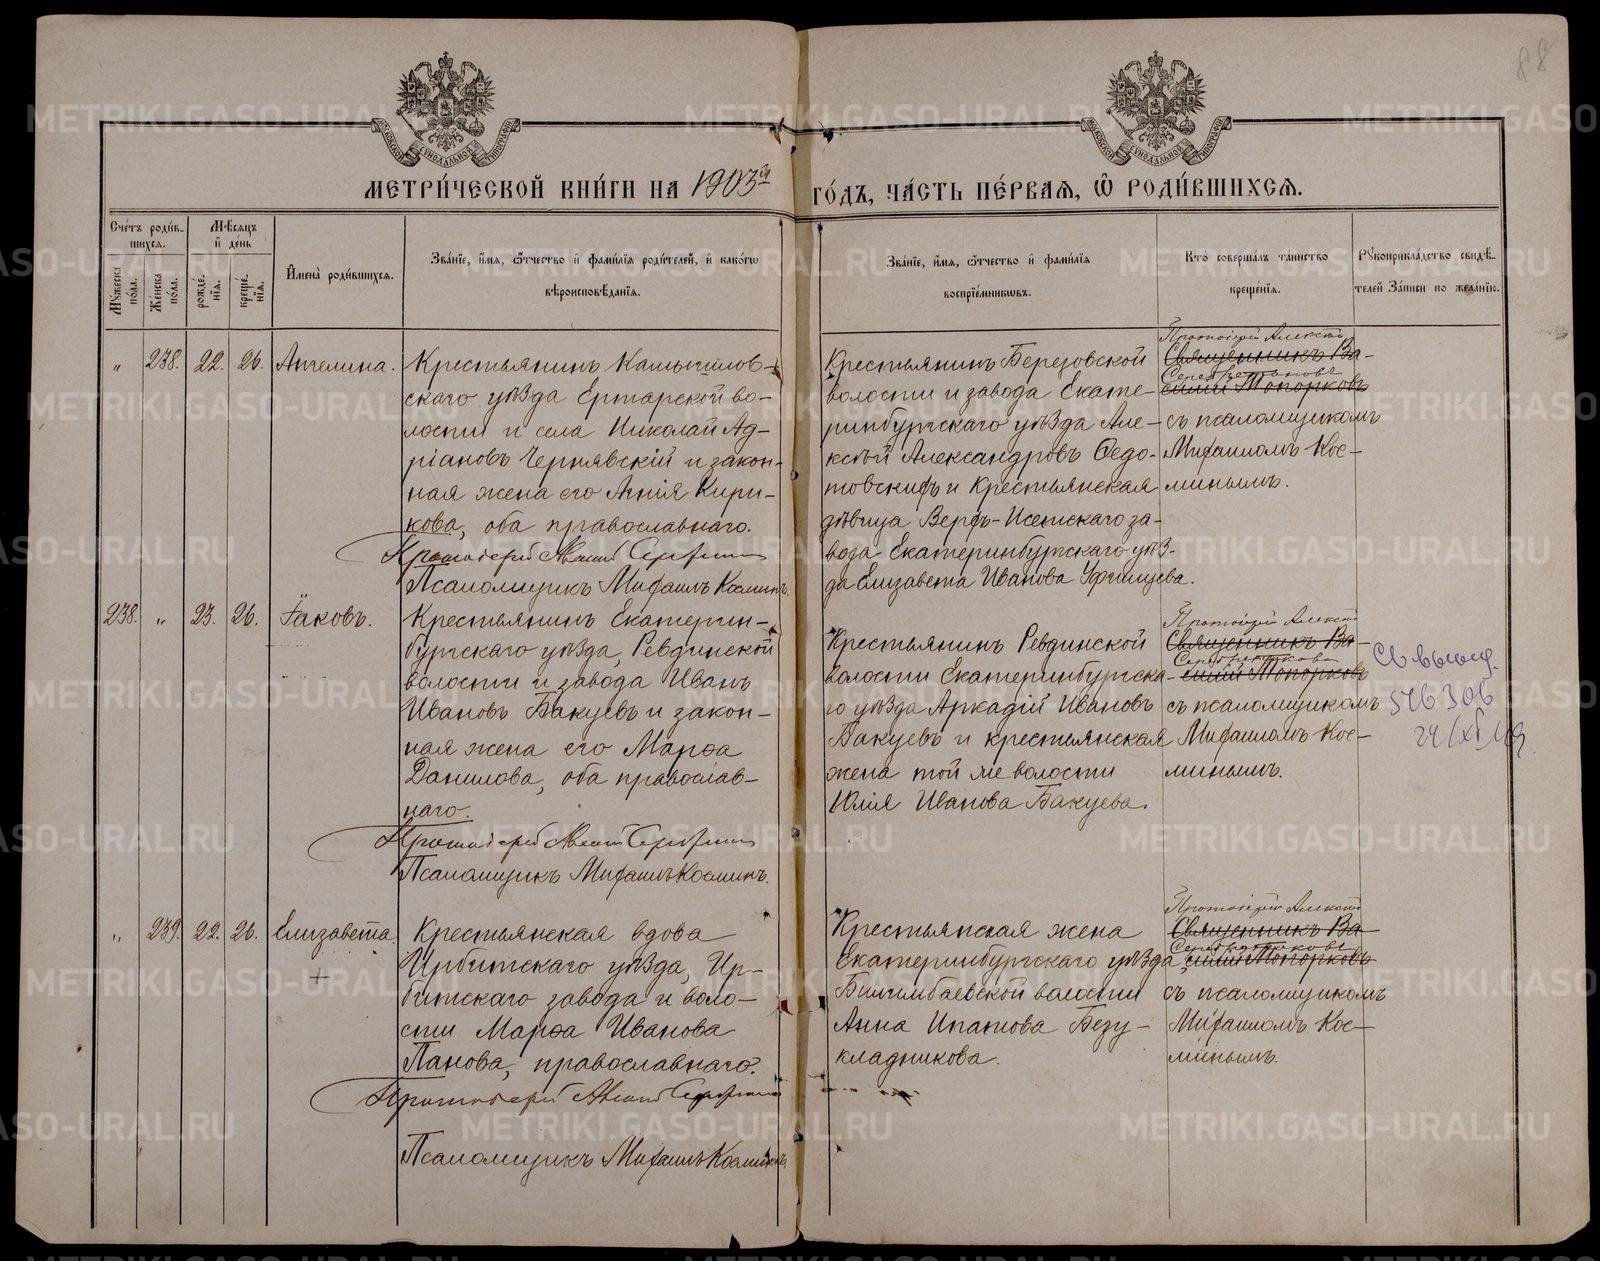 88
МЕТРИ́ЧЕСКОЙ КНИ́ГИ НА 1903й ГО́ДЪ, ЧА́СТЬ ПЕ́РВАЯ, Ѿ РОДИ́ВШИХСЯ.
Сче́тъ роди́вшихся.
Мꙋжеска по́ла.
Же́нска по́ла.
Мѣ́сяцъ и҆ де́нь
рожде́нїѧ.
креще́нїѧ.
И҆мена̀ роди́вшихся.
Зва́нїе, и҆́мя, ѻ҆́тчество и҆ фами́лїя роди́телей, и҆ како́гѡ
вѣроисповѣ́данїя.
Зва́нїе, и҆́мя, ѻ҆́тчество и҆ фами́лїя
воспрїе́мникѡвъ.
Кто̀ соверша́лъ та́инство
креще́нїя.
Рꙋкоприкла́дство свидѣ́-
телей За́писи по жела́нїю.
„ 238. 22. 26. Ангелина.
Крестьянинъ Камышлов-
скаго уѣзда Ертарской во-
лости и села Николай Ад-
ріановъ Чернявскій и закон-
ная жена его Агнія Кири-
кова, оба православнаго.
Протоіерей
Псаломщикъ Михаилъ Косминъ.
Крестьянинъ Березовской
волости и завода Екате-
ринбургскаго уѣзда Але-
ксѣй Александровъ
и крестьянская
дѣвица Верхъ-Исетскаго за-
вода Екатеринбургскаго уѣз-
да Елизавета Иванова Уфинцева.
Протоіерей Алексій
Священникъ Ва-
силій Топорковъ
съ псаломщикомъ
Михаиломъ Кос-
минымъ.
238. „ 23. 26. Іаковъ.
Крестьянинъ Екатерин-
бургскаго уѣзда, Ревдинской
волости и завода Иванъ
Ивановъ Бакуевъ и закон-
ная жена его Марѳа
Данилова, оба православ-
наго.
Протоіерей
Псаломщикъ Михаилъ Косминъ.
Крестьянинъ Ревдинской
волости Екатеринбургска-
го уѣзда Аркадій Ивановъ
Бакуевъ и крестьянская
жена той же волости
Юлія Иванова Бакуева.
Протоіерей Алексій
Священникъ Ва-
силій Топорковъ
съ псаломщикомъ
Михаиломъ Кос-
минымъ.
„ 239. 22. 26. Елизавета.
Крестьянская вдова
Ирбитскаго уѣзда, Ир-
битскаго завода и воло-
сти Марѳа Иванова
Панова, православнаго.
Протоіерей
Псаломщикъ Михаилъ Косминъ.
Крестьянская жена
Екатеринбургскаго уѣзда
Билимбаевской волости
Анна Ипатова Безу-
кладникова.
Протоіерей Алексій
Священникъ Ва-
силій Топорковъ
съ псаломщикомъ
Михаиломъ Кос-
минымъ.
METRIKI.GASO-URAL.RU